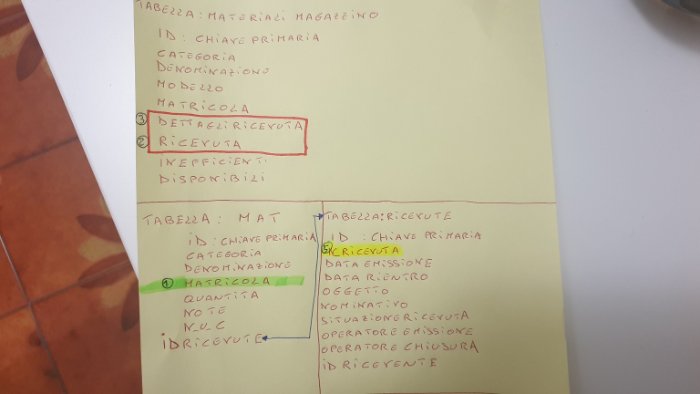 TABELLA: MATERIALI MAGAZZINO
ID: CHIAVE PRIMARIA
CATEGORIA
DENOMINAZIONE
MODELLO
MATRICOLA
3 DETTAGLIRICEVUTA
2 RICEVUTA
INEFFICIENTI
DISPONIBILI
TABELLA: MAT
ID: CHIAVE PRIMARIA
CATEGORIA
DENOMINAZIONE
1 MATRICOLA
QUANTITA
NOTE
N_U_C
IDRICEVUTE
TABELLA:RICEVUTE
ID : CHIAVE PRIMARIA
RICEVUTA
DATA EMISSIONE
DATA RIENTRO
OGGETTO
NOMINATIVO
SITUAZIONERICEVUTA
OPERATORE EMISSIONE
OPERATORE CHIUSURA
IDRICEVENTE